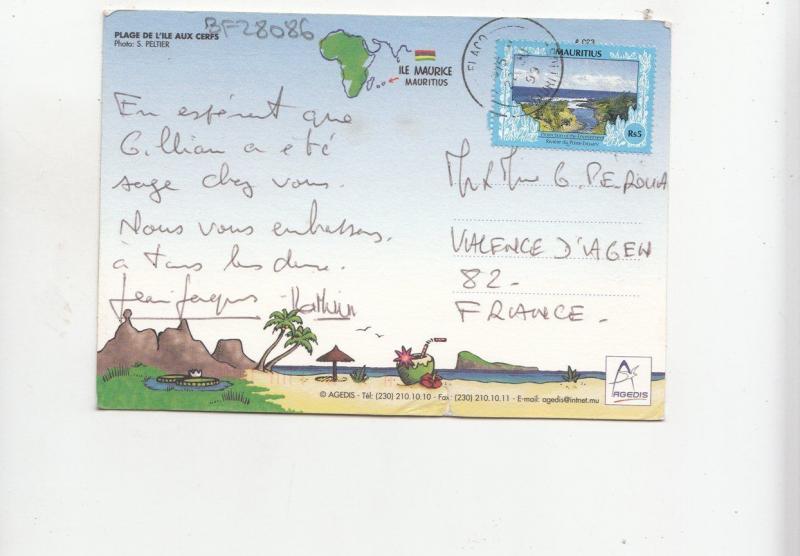 BF28086
PLAGE DE L'ILE AUX CERFS
Photo: S. PELTIER
ILE MAURICE
MAURITIUS
FLACQ
MAURITIUS
Rs5
Protection of the Environment
Rivière du Poste Estuary
En espérant que
Gillian a été
sage chez vous.
Nous vous embrassons,
à tous les deux.
Jean Jacques - Kathleen
Mr & Mme G. PEROUA
VALENCE D'AGEN
82-
FRANCE-
© AGEDIS - Tél: (230) 210.10.10 - Fax: (230) 210.10.11 - E-mail: agedis@intnet.mu
AGEDIS